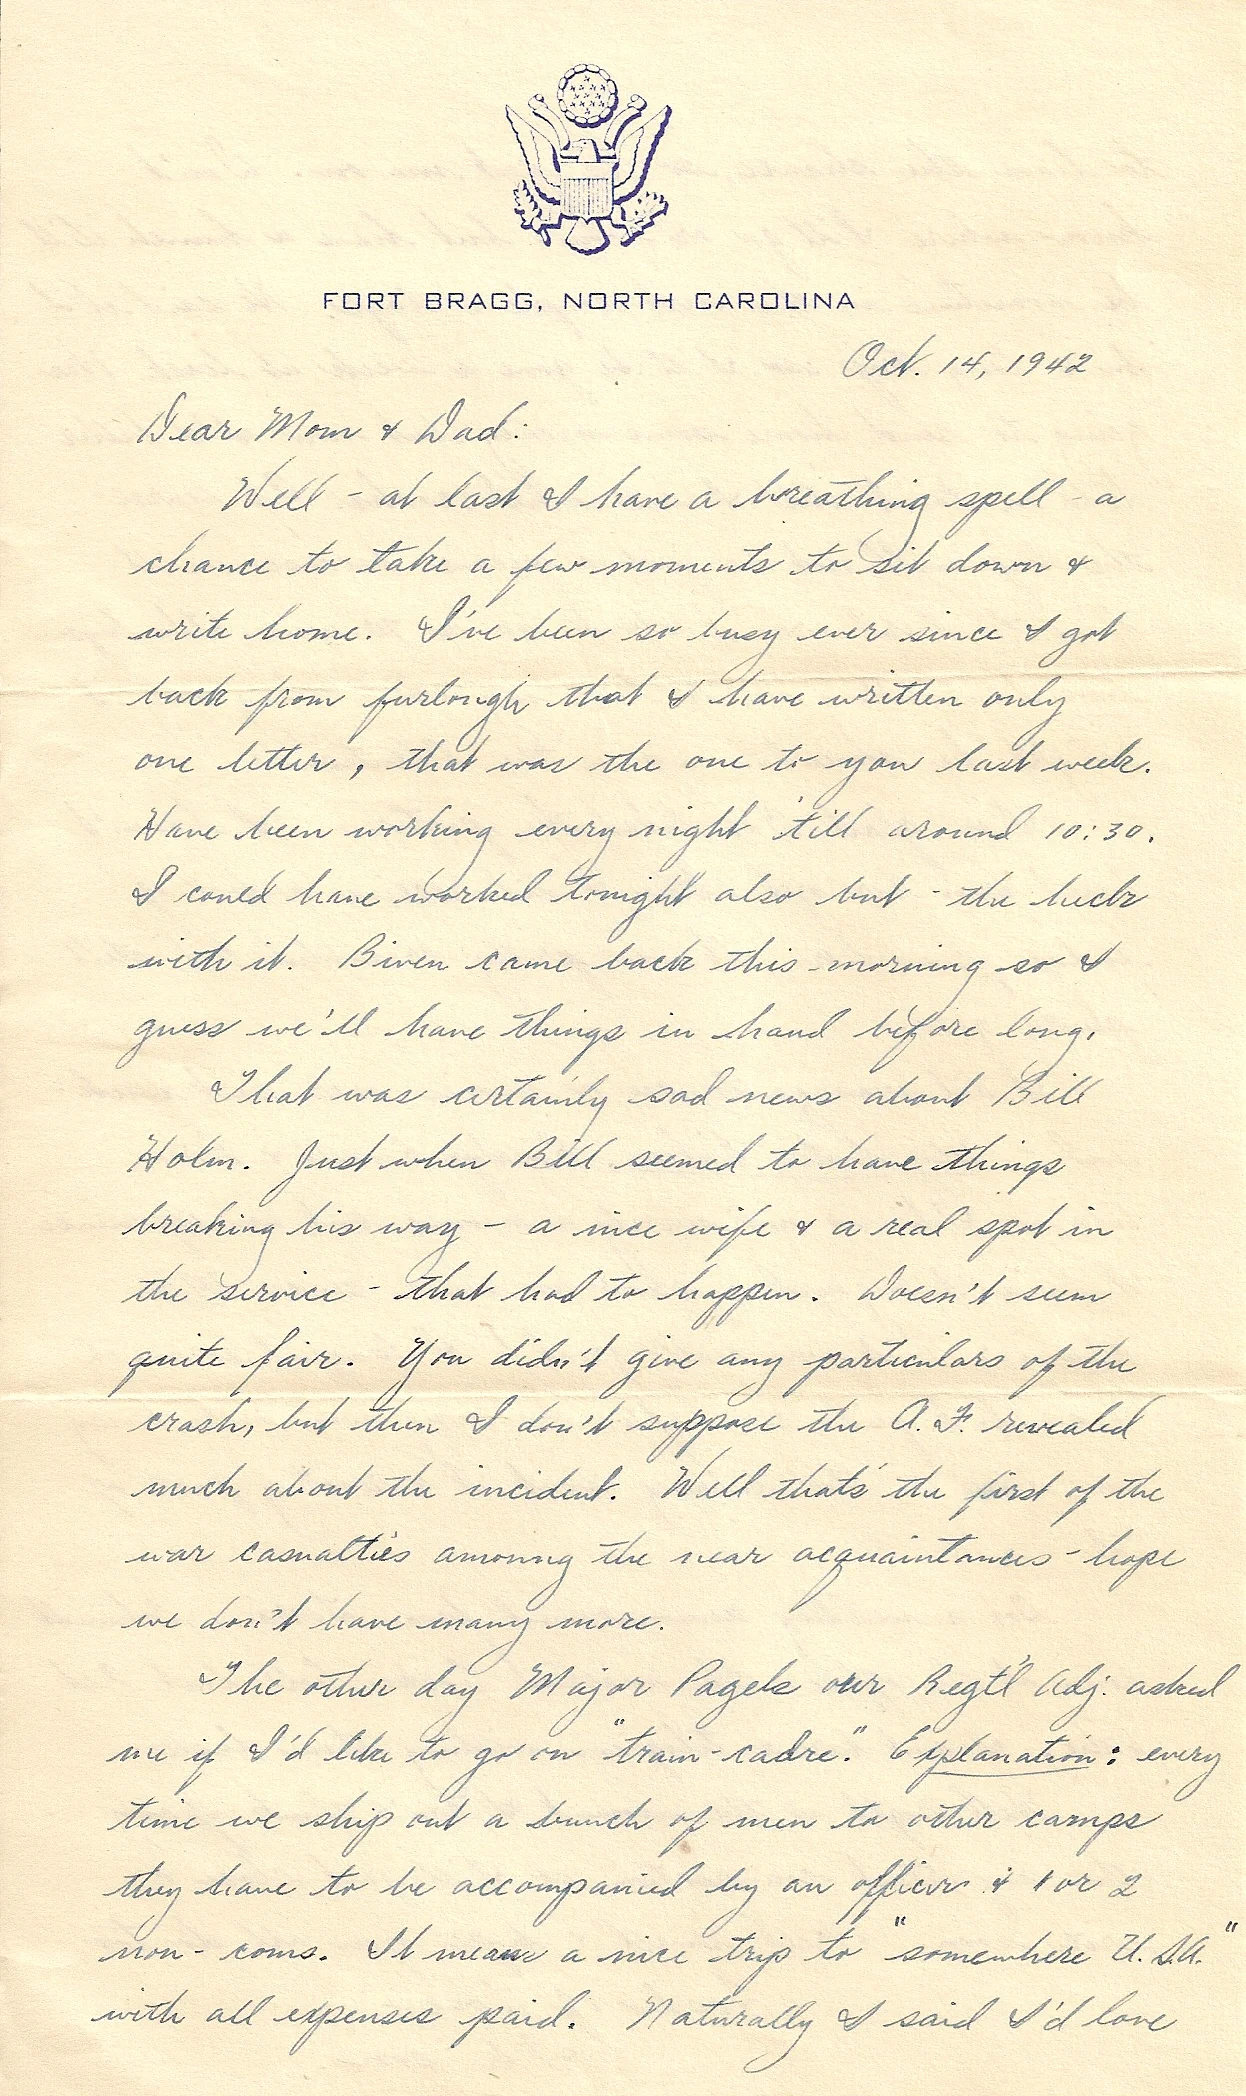 FORT BRAGG, NORTH CAROLINA
Oct. 14, 1942
Dear Mom & Dad:
Well - at last I have a breathing spell - a
chance to take a few moments to sit down &
write home. I've been so busy ever since I got
back from furlough that I have written only
one letter, that was the one to you last week.
Have been working every night 'till around 10:30.
I could have worked tonight also but - the heck
with it. Biven came back this morning so I
guess we'll have things in hand before long.
That was certainly sad news about Bill
Holm. Just when Bill seemed to have things
breaking his way - a nice wife & a real spot in
the service - that had to happen. Doesn't seem
quite fair. You didn't give any particulars of the
crash, but then I don't suppose the A.F. revealed
much about the incident. Well that's the first of the
war casualties amoung the near acquaintances - hope
we don't have many more.
The other day Major Pagels our Regt'l Adj. asked
me if I'd like to go on "train-cadre." Explanation: every
time we ship out a bunch of men to other camps
they have to be accompanied by an officer & 1 or 2
non-coms. It means a nice trip to "somewhere U.S.A."
with all expenses paid. Naturally I said I'd love